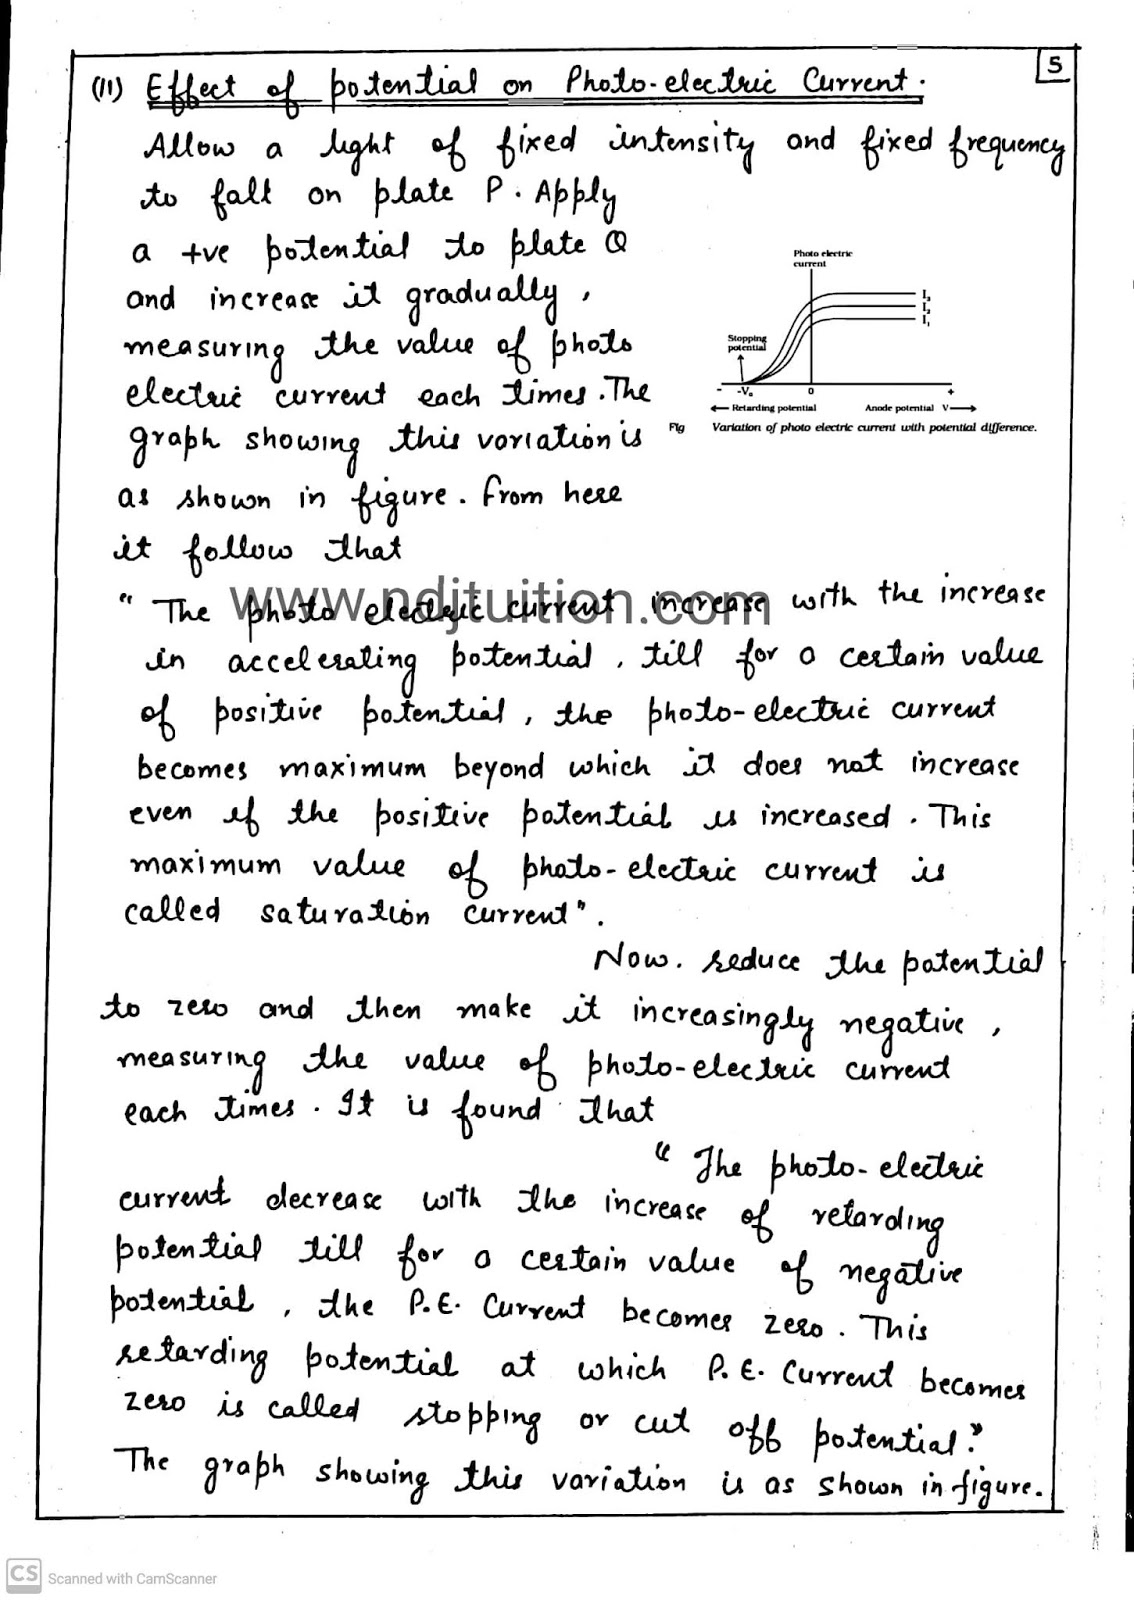 5
(11) Effect of potential on Photo-electric Current.
Allow a light of fixed intensity and fixed frequency
to fall on plate P. Apply
a +ve potential to plate Q
and increase it gradually,
measuring the value of photo
electric current each times. The
graph showing this variation is
as shown in figure. From here
it follow that
Photo electric
current
I₃
I₂
I₁
Stopping
potential
- -V₀ 0 +
Retarding potential Anode potential V
Fig Variation of photo electric current with potential difference.
www.ndjtuition.com
" The photo electric current increase with the increase
in accelerating potential, till for a certain value
of positive potential, the photo-electric current
becomes maximum beyond which it does not increase
even if the positive potential is increased. This
maximum value of photo-electric current is
called saturation current".
Now. reduce the potential
to zero and then make it increasingly negative,
measuring the value of photo-electric current
each times. It is found that
" The photo-electric
current decrease with the increase of retarding
potential till for a certain value of negative
potential, the P.E. Current becomes zero. This
retarding potential at which P.E. Current becomes
zero is called stopping or cut off potential."
The graph showing this variation is as shown in figure.
CS Scanned with CamScanner